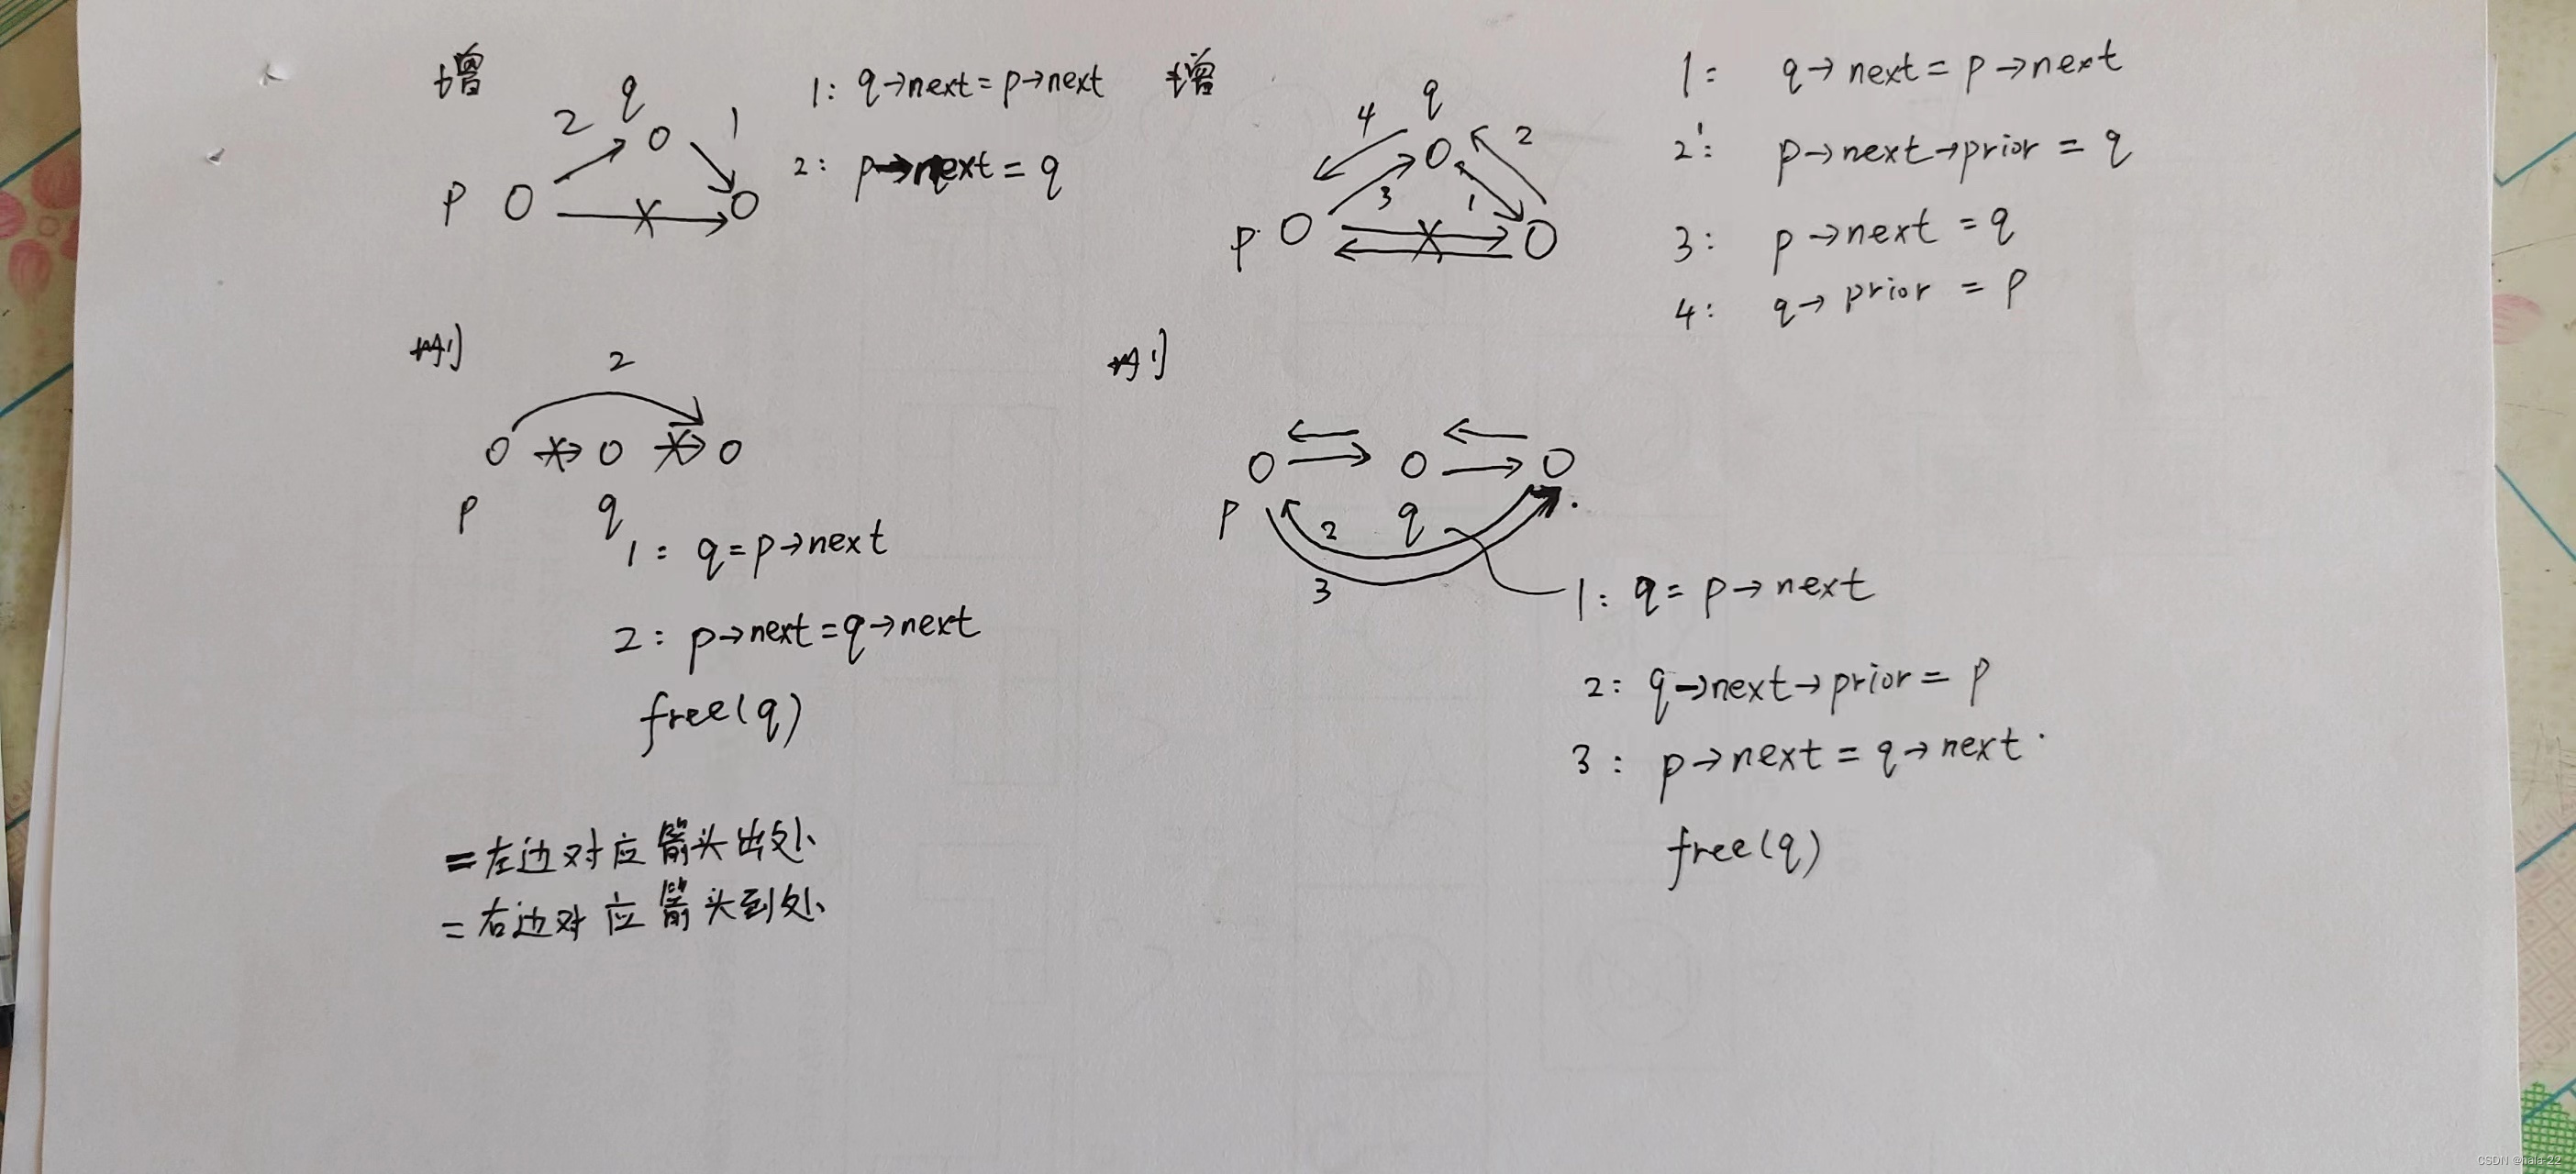 增
q
2
1
p
1: q→next=p→next
2: p→next=q
增
q
4
2
3
1
p
1: q→next=p→next
2: p→next→prior=q
3: p→next=q
4: q→prior=p
删
2
p
q
1: q=p→next
2: p→next=q→next
free(q)
删
p
q
2
3
1: q=p→next
2: q→next→prior=p
3: p→next=q→next
free(q)
=左边对应箭头出处
=右边对应箭头到处